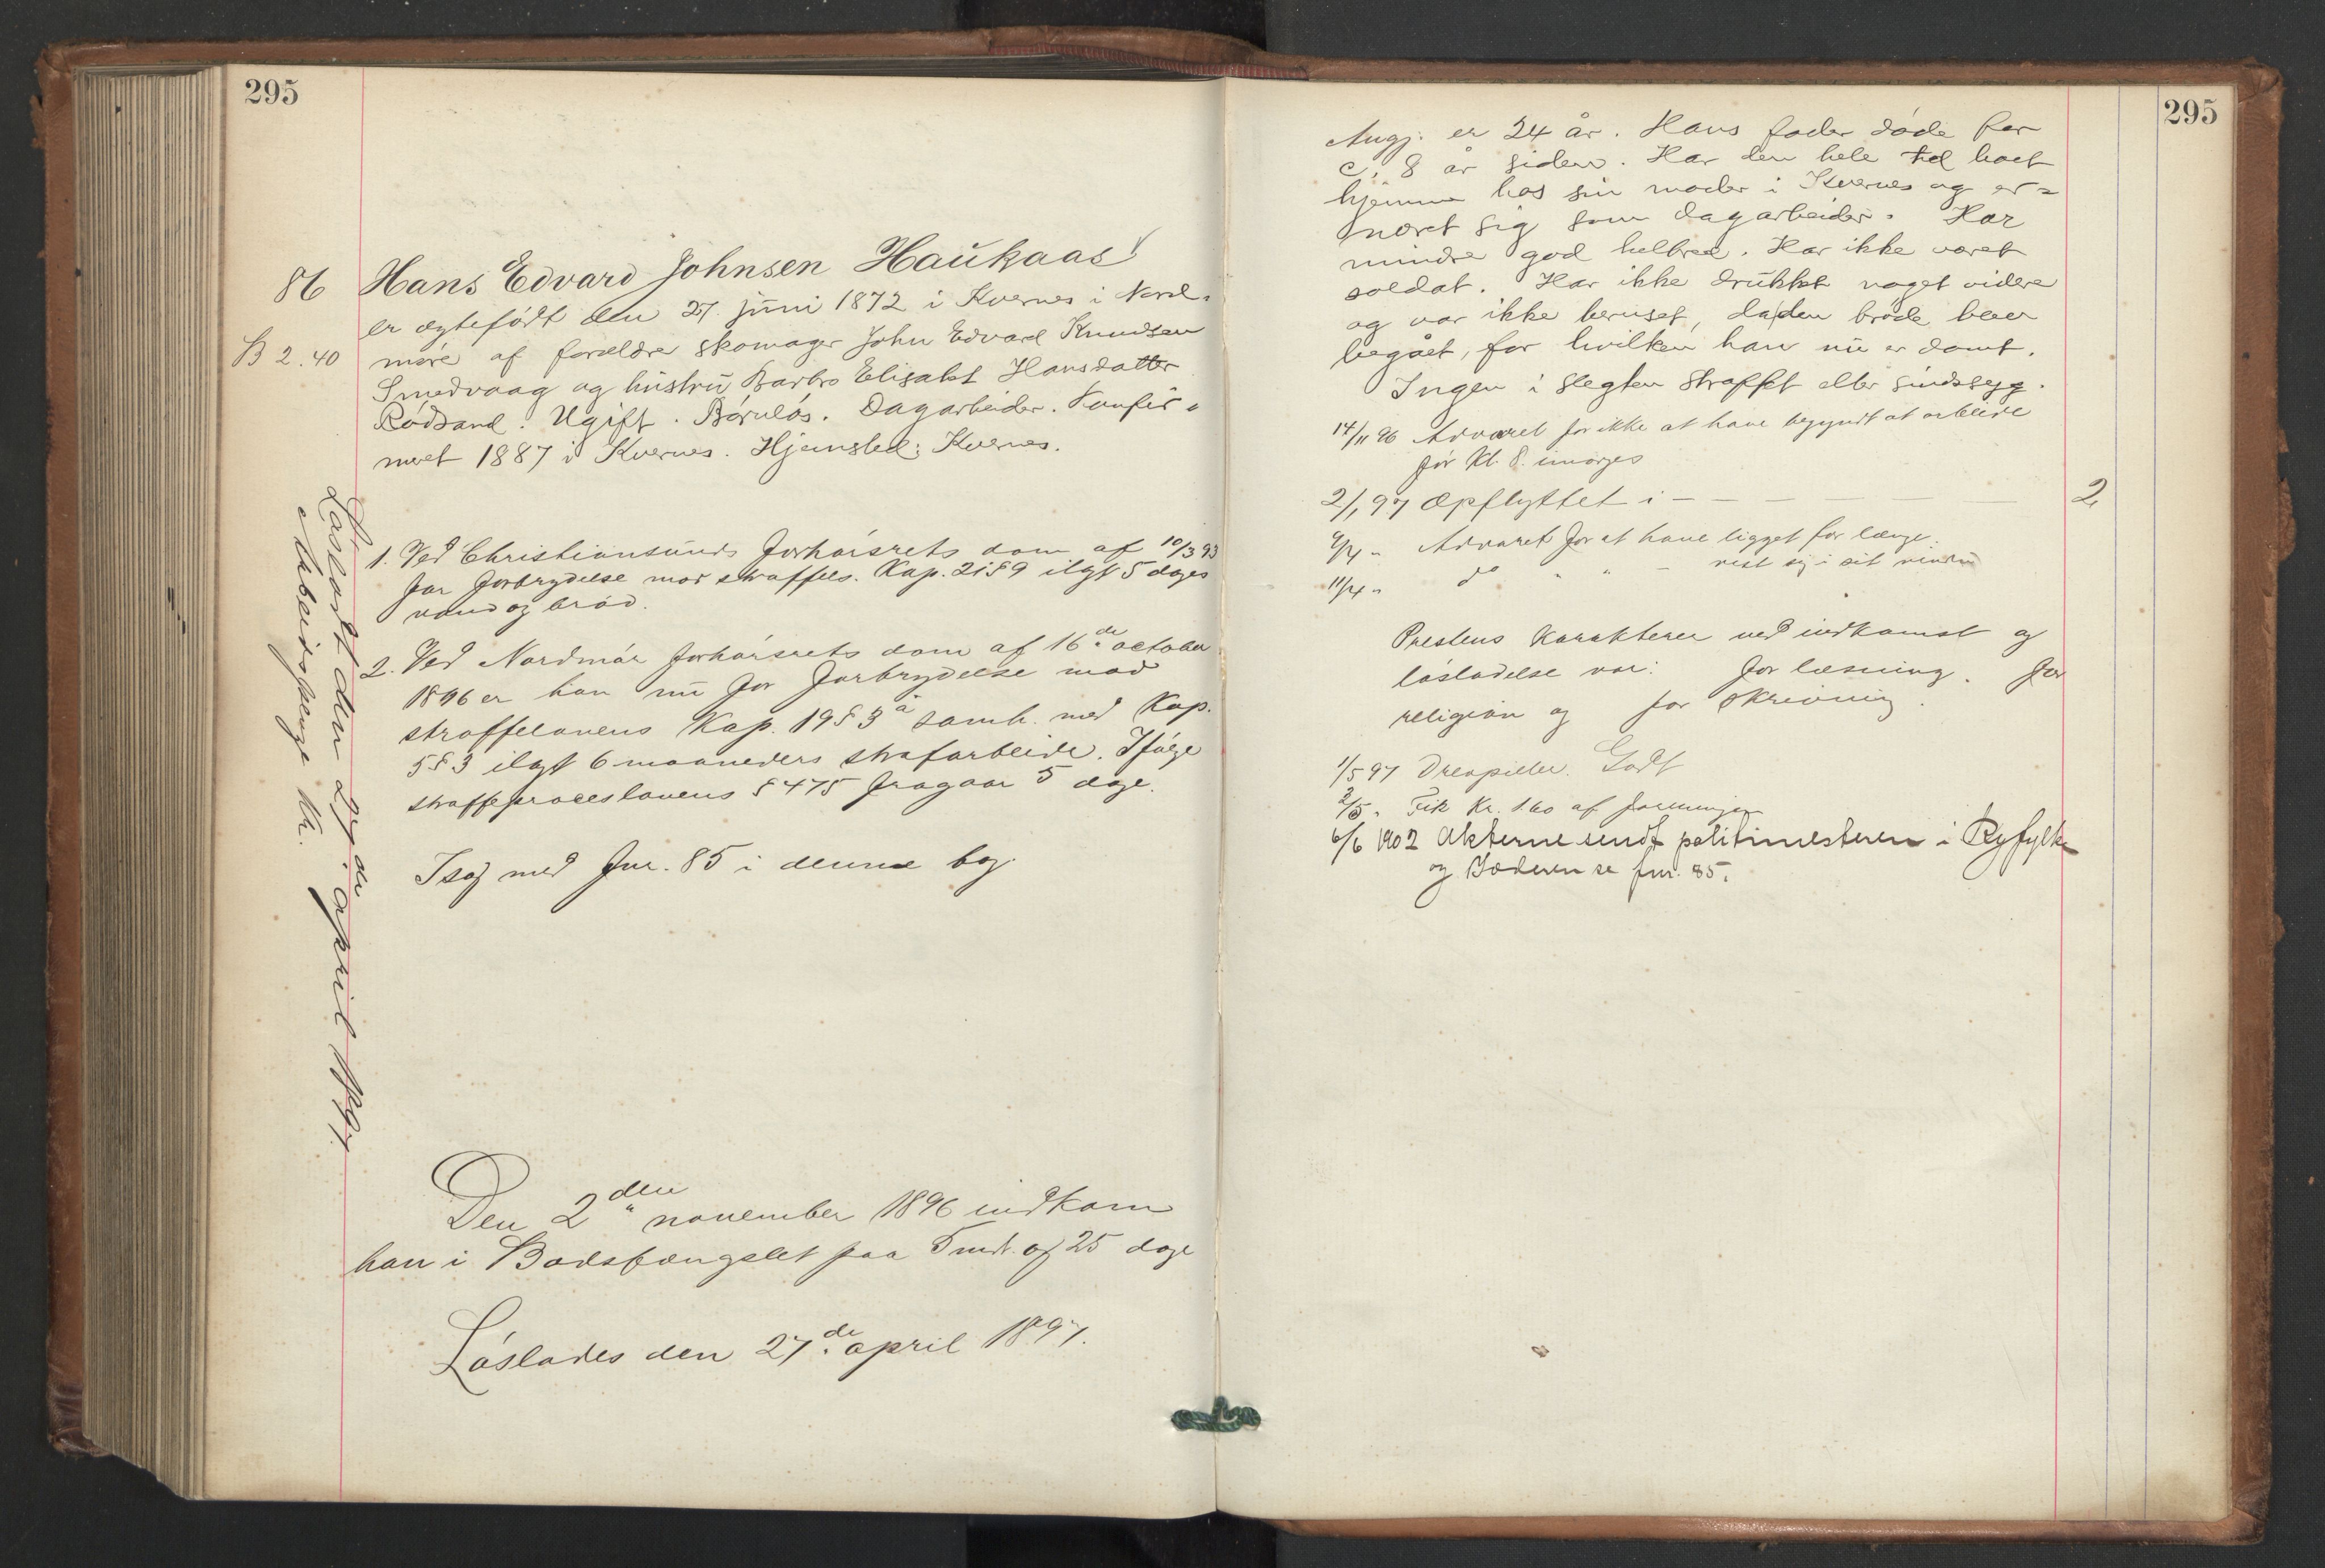 295
86 Hans Edvard Johnsen Haukaas
er ægtefødt den 27. juni 1872 i Kvernes i Nord-
B 2.40 møre af forældre skomager John Edvard Knudsen
Smedvaag og hustru Barbro Elisabet Hansdatter
Rødsand. Ugift. Børnløs. Dagarbeider. Konfir-
meret 1887 i Kvernes. Hjemsted: Kvernes.
1. Ved Christiansunds forhørsrets dom af 10/3 93
for forbrydelse mod straffels. Kap. 21 § 9 ilagt 5 dages
vand og brød.
2. Ved Nordmør forhørsrets dom af 16de october
1896 er han nu for forbrydelse mod
straffelovens Kap. 19 § 3 a samh. med Kap.
5 § 3 ilagt 6 maaneders strafarbeide. Ifølge
straffeproceslovens § 475 fragaar 5 dage.
I sag med fnr. 85 i denne bog.
Løsladt den 27de april 1897.
Arbeidspenge Kr.
Den 2den november 1896 indkom
han i Bodsfængslet paa 5 mdr. og 25 dage
Løslades den 27de april 1897.
295
Angj. er 24 år. Hans fader døde for
c. 8 år siden. Har den hele tid boet
hjemme hos sin moder i Kvernes og er-
næret sig som dagarbeider. Har
mindre god helbred. Har ikke været
soldat. Har ikke drukket noget videre
og var ikke beruset, da den brøde blev
begået, for hvilken han nu er dømt.
Ingen i slegten straffet eller sindssyg.
14/11 96 Advaret for ikke at have begyndt at arbeide
før Kl. 8. imorges
2/1 97 Opflyttet i — — — — 2
9/4 " Advaret for at have ligget for længe.
11/4 " do " " — vist sig i sit vindu
Prestens Karakterer ved indkomst og
løsladelse var: for læsning. for
religion og for skrivning.
1/5 97 Godt
2/5 " Fik Kr. 1.60 af foreningen
6/6 1902 Akterne sendt politimesteren i Ryfylke
og Jæderen se fnr. 85.